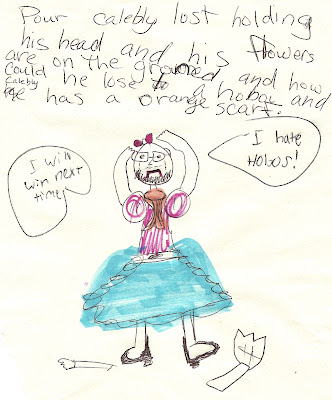 Pour calebly lost holding
his head and his flowers
are on the ground and how
could he lose to a hobow and
Calebly
He has a orange scarf.
I will
win next
time!
I hate
HOBOS!